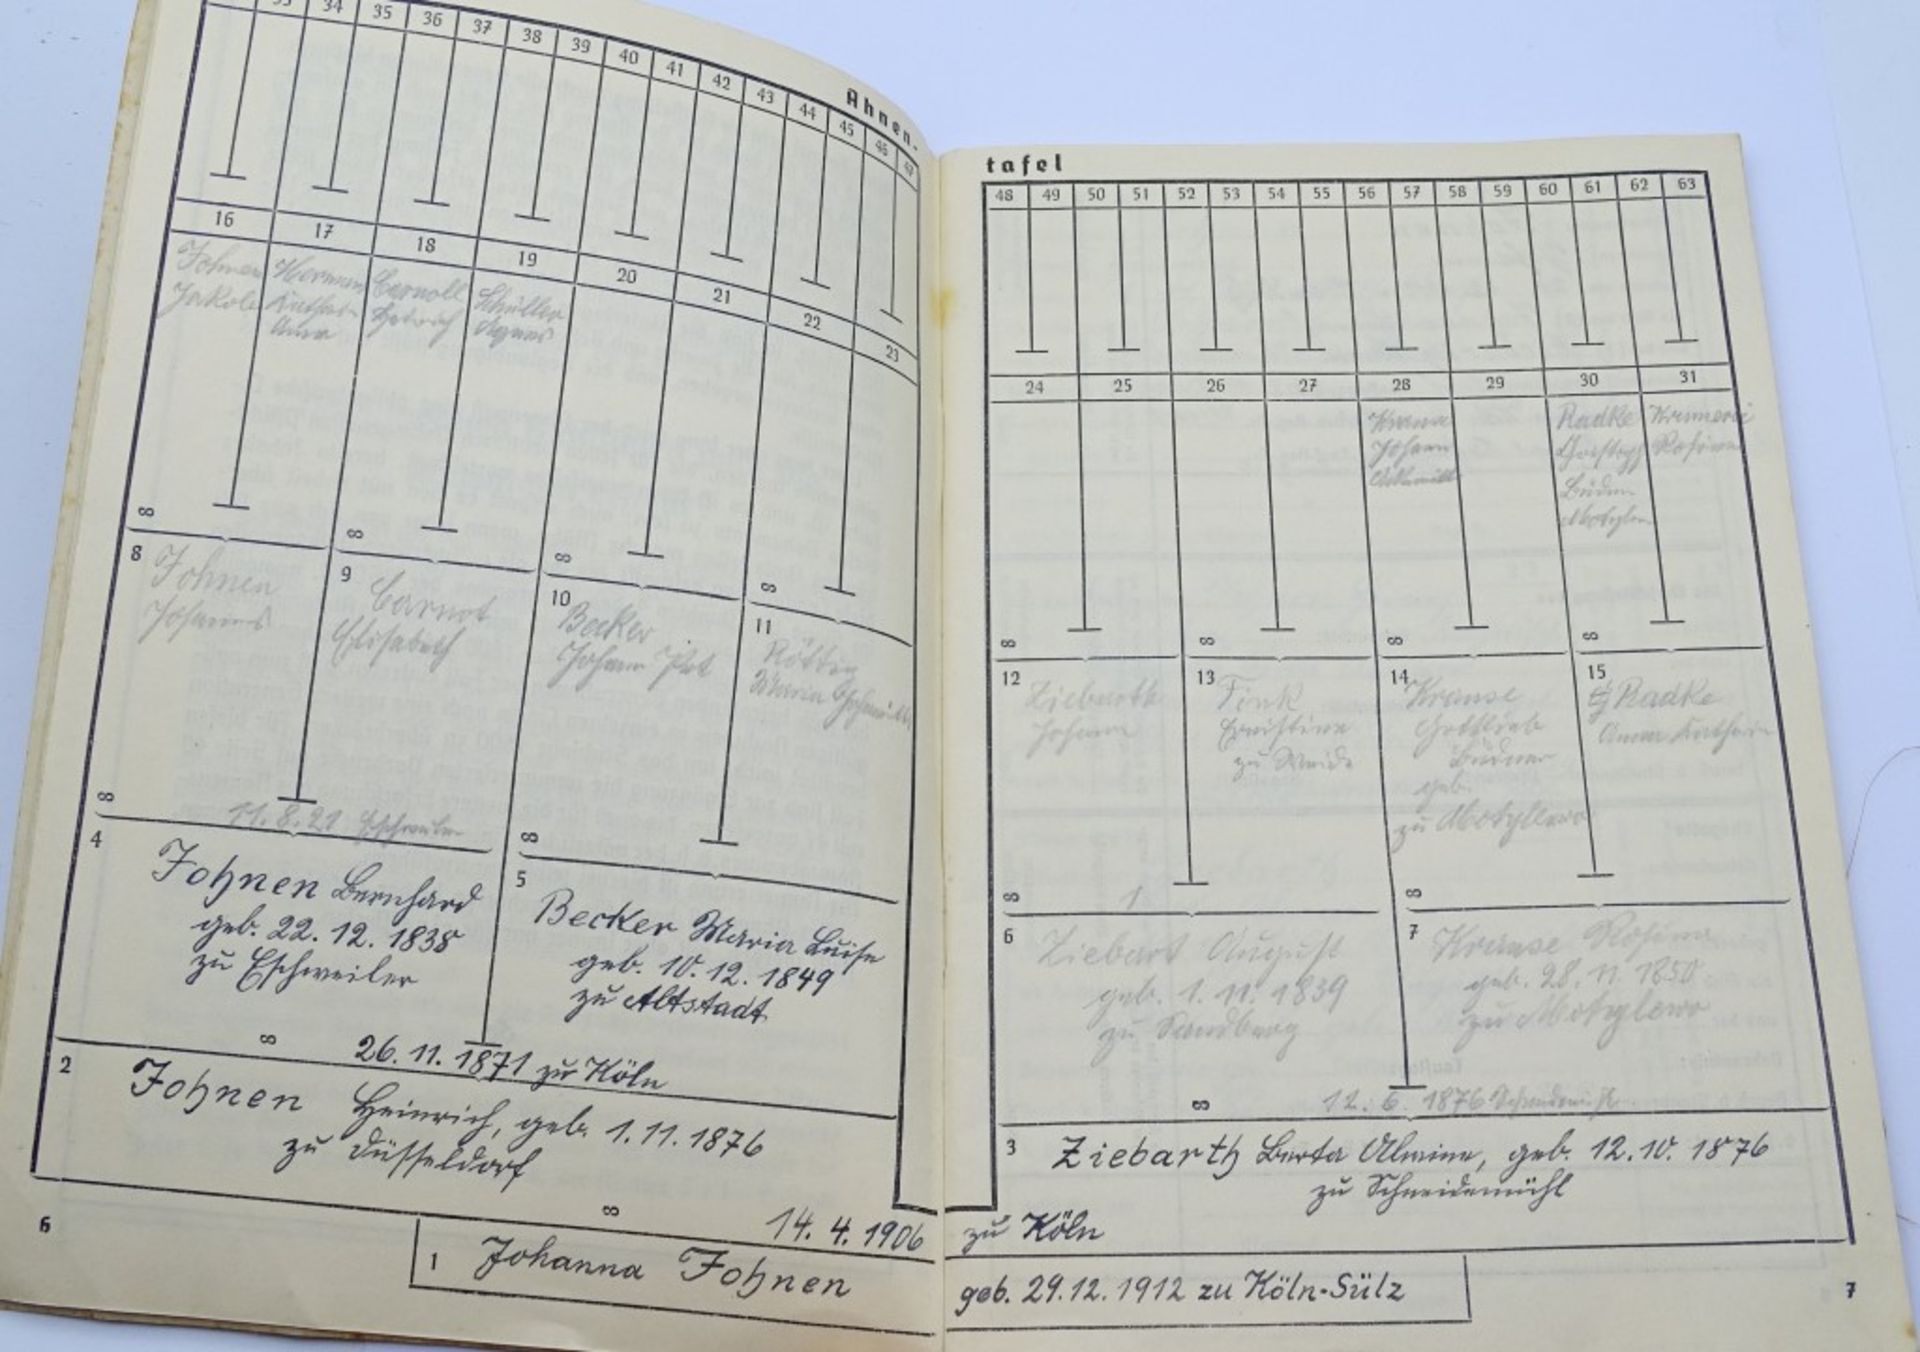 Ahnen-
33 34 35 36 37 38 39 40 41 42 43 44 45 46 47
16 17 18 19 20 21 22 23
Fohnen
Jakob
Hermann
Anna
Carnoll
Schüller
Agnes
∞ ∞ ∞ ∞
8 Fohnen
Johannes
9 Carnot
Elisabeth
10 Becker
Johann Pet
11
Maria
∞ 11.8.21
∞
4 Fohnen Bernhard
geb. 22. 12. 1838
zu Eschweiler
5 Becker Maria Luise
geb. 10. 12. 1849
zu Altstadt
∞ 26. 11. 1871 zu Köln
2 Fohnen Heinrich, geb. 1. 11. 1876
zu Düsseldorf
∞ 14. 4. 1906
1 Johanna Fohnen
6
tafel
48 49 50 51 52 53 54 55 56 57 58 59 60 61 62 63
24 25 26 27 28 29 30 31
Johann
Radke
∞ ∞ ∞ ∞
12 Ziebarth
Johann
13 Fink
14 Krause
Gottlieb
Büdner
geb.
zu Motyllewo
15 Radke
Anna
∞ ∞
6 Ziebart August
geb. 1. 11. 1839
zu Sandberg
7 Krause Rosina
geb. 28. 11. 1850
zu Motylewo
∞ 1876
3 Ziebarth Berta Almine, geb. 12. 10. 1876
zu Schneidemühl
zu Köln
geb. 29. 12. 1912 zu Köln-Sülz
7